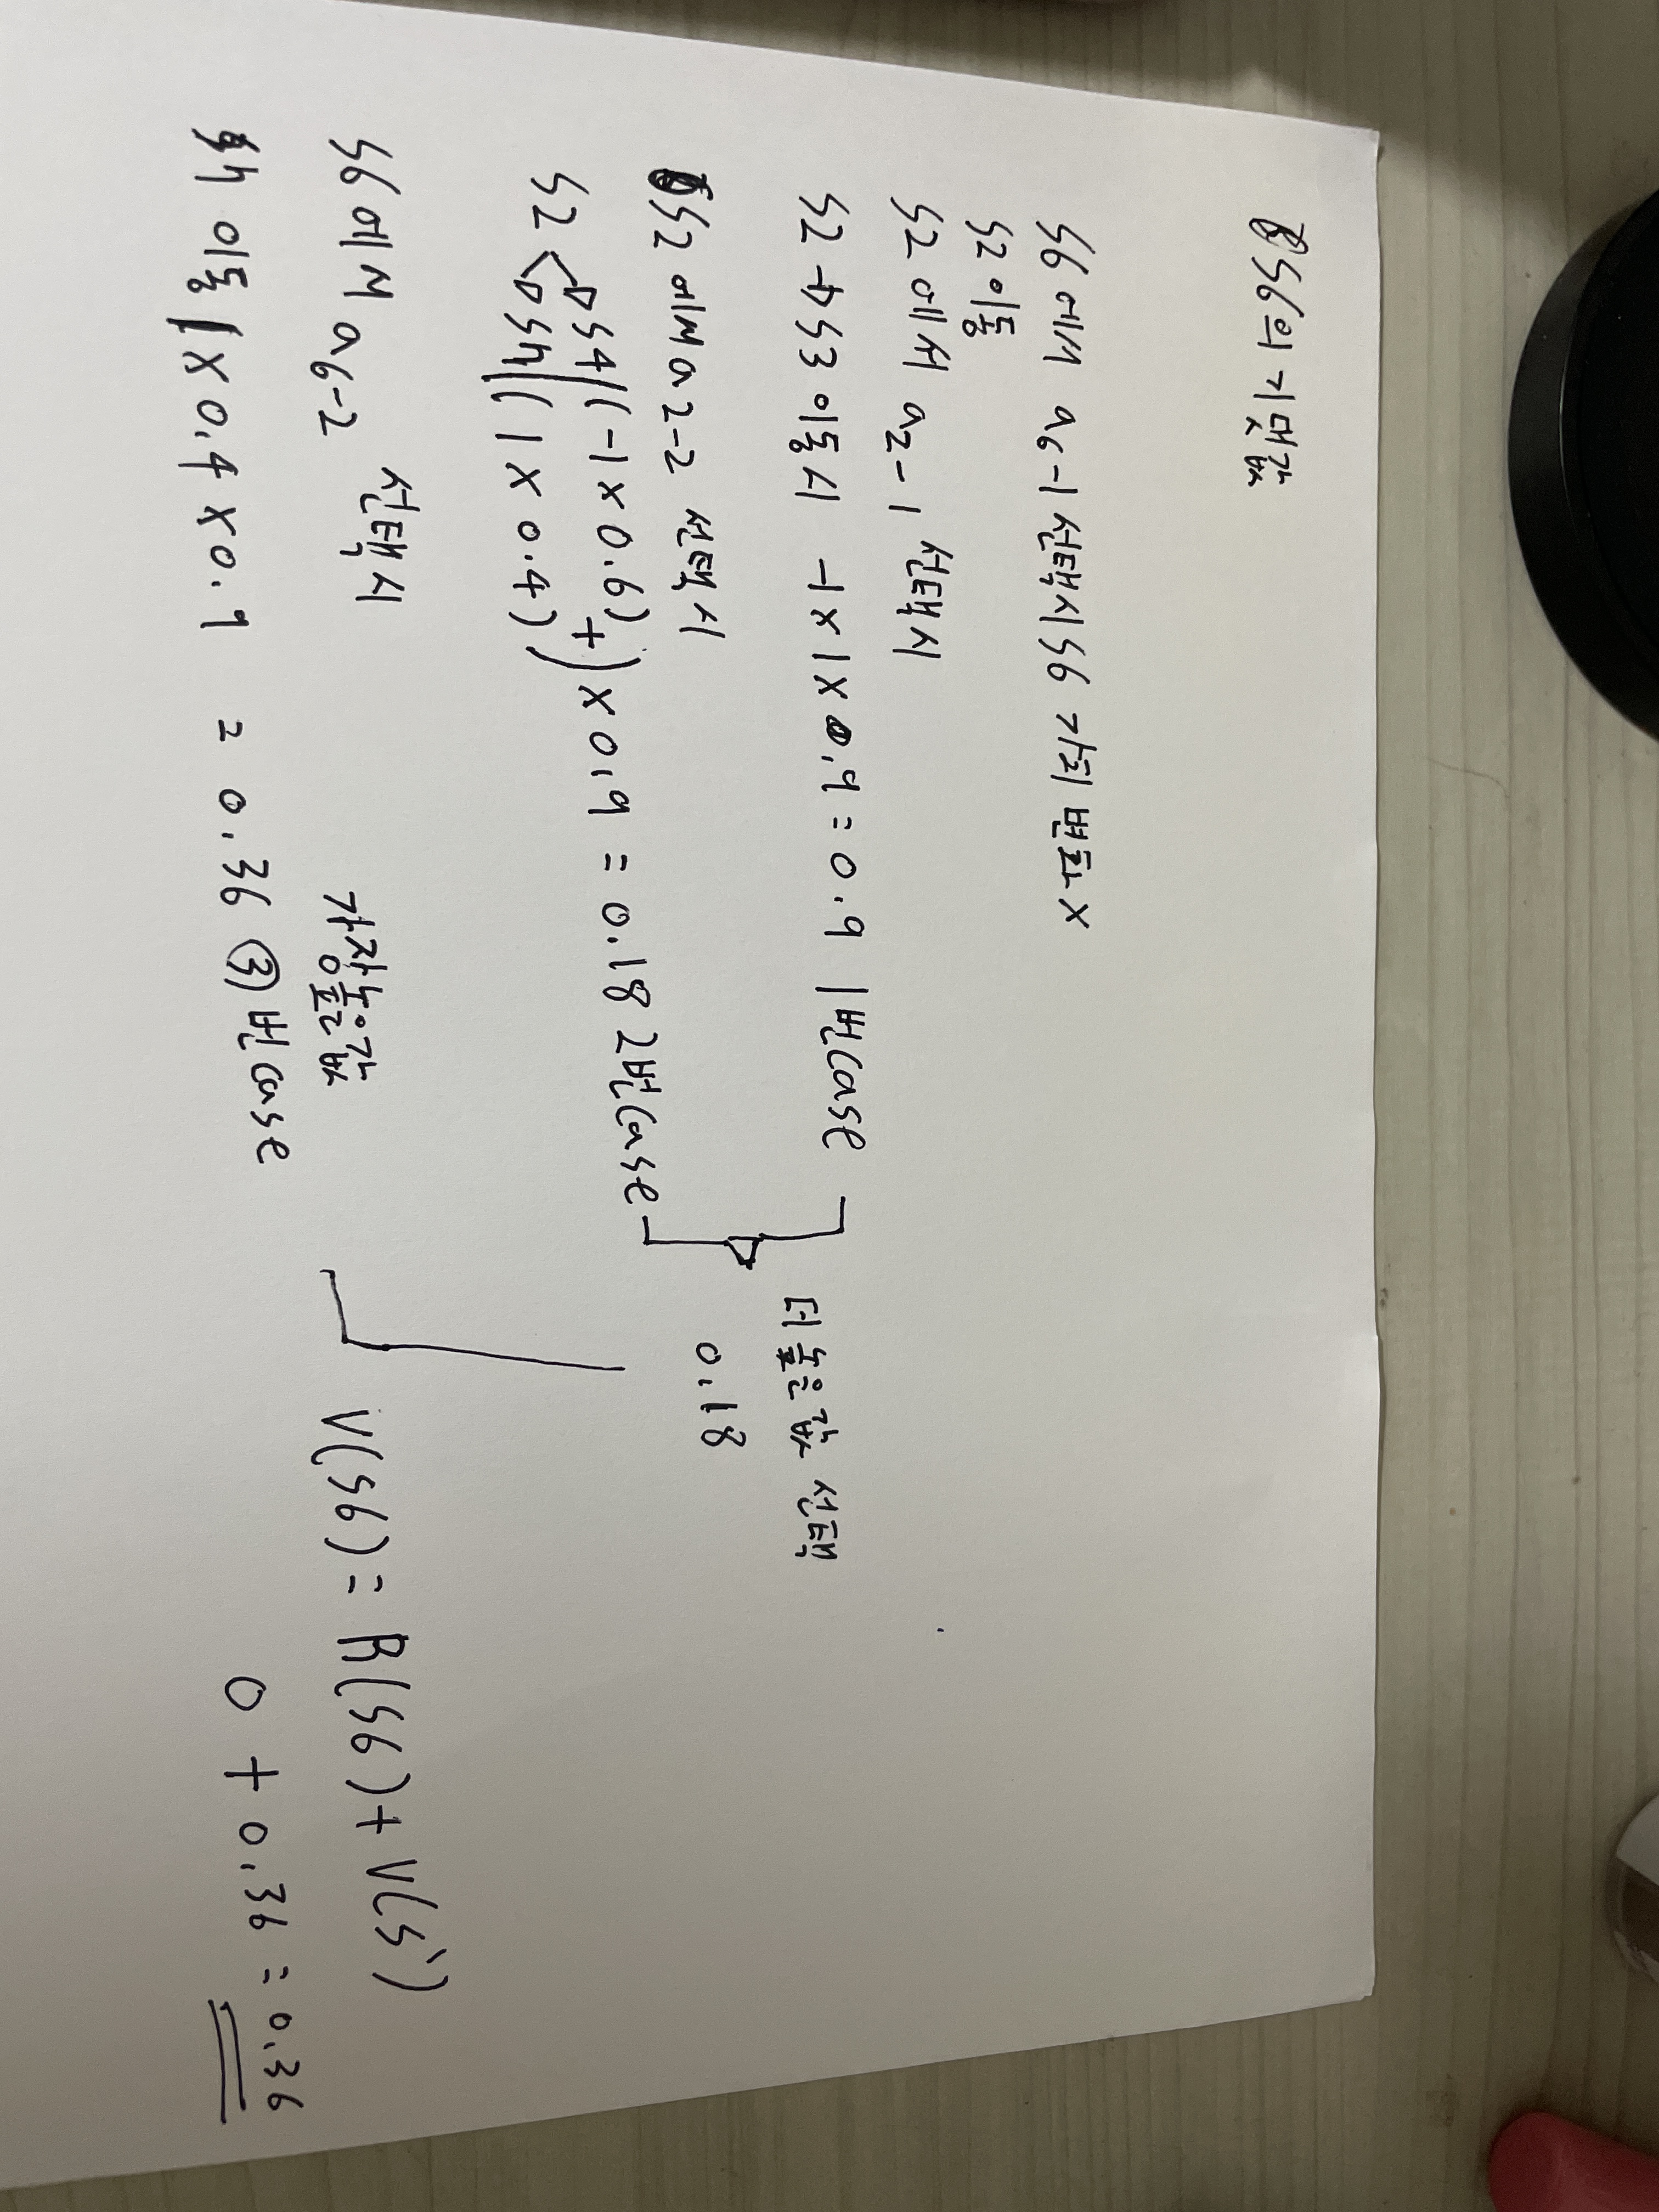 S6의 기댓값
S6 에서 a6-1 선택시 S6 가치 변화 X
S2 이동
S2 에서 a2-1 선택시
S2 → S3 이동시 -1 x 1 x 0.9 = 0.9 1번case
더 높은 값 선택
0.18
S2 에서 a2-2 선택시
S2 → S4 (-1 x 0.6) +
→ S7 (1 x 0.4) ) x 0.9 = 0.18 2번case
S6에서 a6-2 선택시
가장높은값
S7 이동 1 x 0.4 x 0.9 = 0.36 ③번case
V(S6) = R(S6) + V(S`)
0 + 0.36 = 0.36